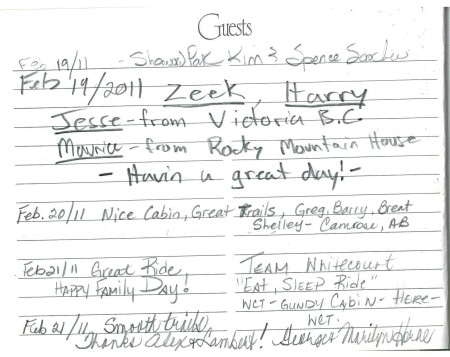 Guests
Feb 19/11 - Shawn Pak Kim & Spence
Feb 19/2011 Zeek, Harry
Jesse - from Victoria B.C.
Maurice - from Rocky Mountain House
- Havin a great day! -
Feb. 20/11 Nice Cabin, Great Trails, Greg, Barry, Brent
Shelley - Camrose, AB
Feb 21/11 Great Ride,
HAPPY FAMILY DAY!
TEAM Whitecourt
"EAT, SLEEP Ride"
WCT - GUNDY CABIN - HERE -
WCT.
Feb 21/11, Smooth trails,
Thanks Alex & Lambert! George & Marilyn